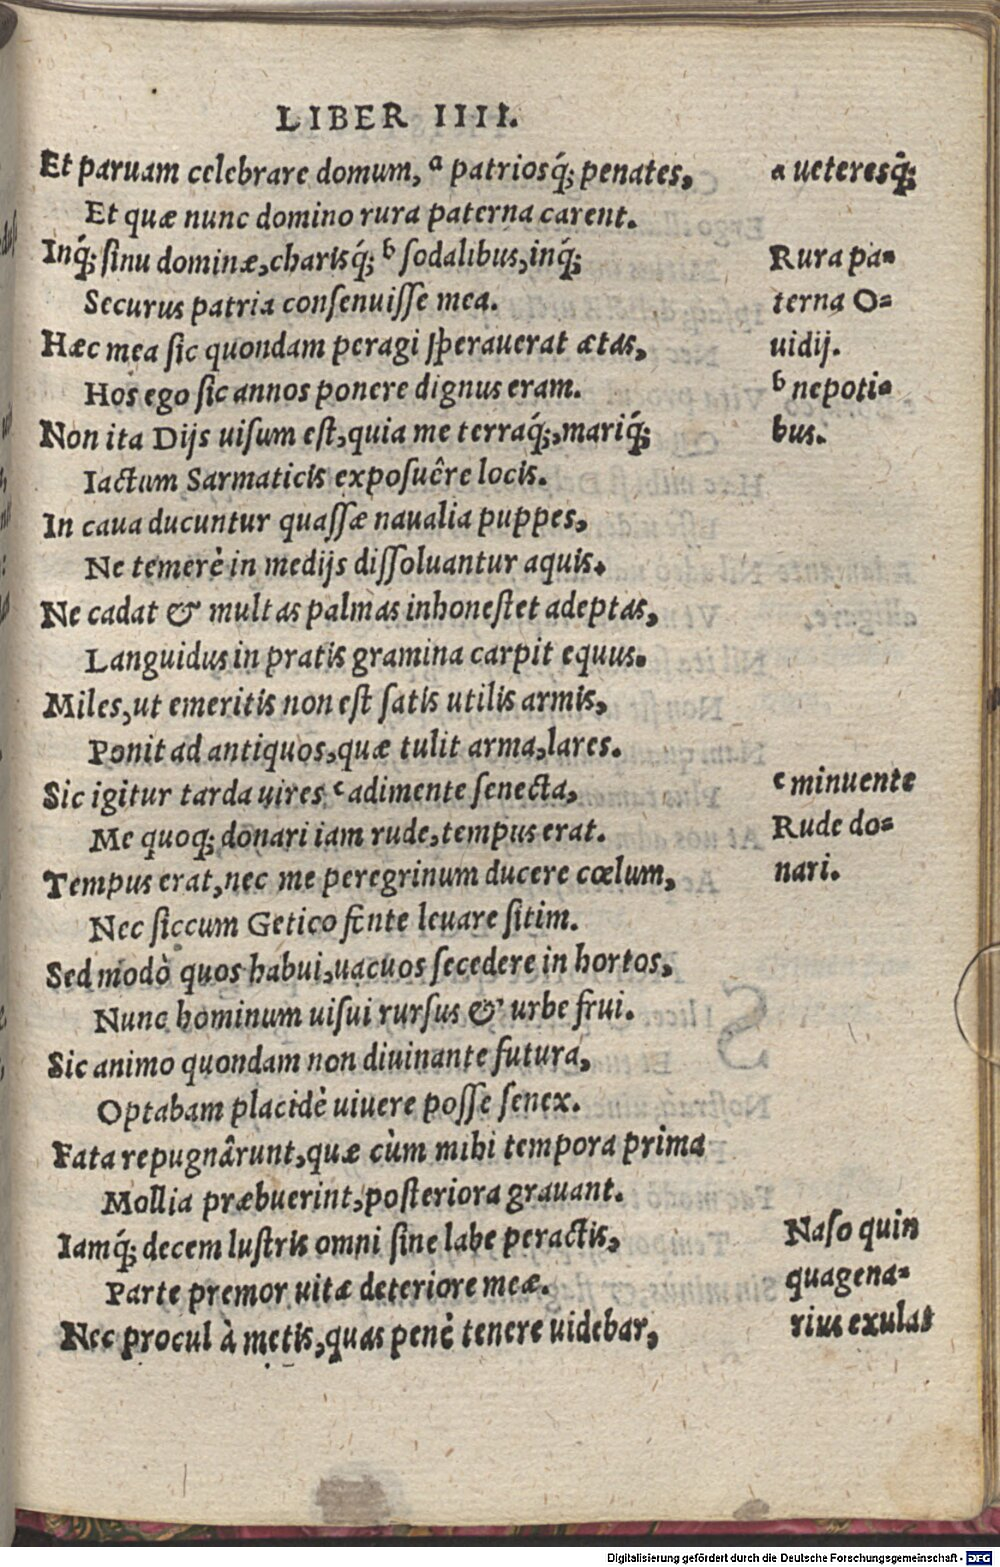 LIBER IIII.
Et paruam celebrare domum, ᵃ patriosq́; penates,
Et quæ nunc domino rura paterna carent.
Inq́; sinu dominæ, charisq́; ᵇ sodalibus, inq́;
Securus patria consenuisse mea.
Hæc mea sic quondam peragi sperauerat ætas,
Hos ego sic annos ponere dignus eram.
Non ita Dijs uisum est, quia me terraq́;, mariq́;
Iactum Sarmaticis exposuêre locis.
In caua ducuntur quassæ naualia puppes,
Ne temerè in medijs dissoluantur aquis.
Ne cadat & multas palmas inhonestet adeptas,
Languidus in pratis gramina carpit equus.
Miles, ut emeritis non est satis utilis armis,
Ponit ad antiquos, quæ tulit arma, lares.
Sic igitur tarda uires ᶜ adimente senecta,
Me quoq; donari iam rude, tempus erat.
Tempus erat, nec me peregrinum ducere cœlum,
Nec siccum Getico fonte leuare sitim.
Sed modò quos habui, uacuos secedere in hortos,
Nunc hominum uisui rursus & urbe frui.
Sic animo quondam non diuinante futura,
Optabam placidè uiuere posse senex.
Fata repugnârunt, quæ cùm mihi tempora prima
Mollia præbuerint, posteriora grauant.
Iamq́; decem lustris omni sine labe peractis,
Parte premor uitæ deteriore meæ.
Nec procul à metis, quas penè tenere uidebar,
a ueteresq́;
Rura pa-
terna O-
uidij.
ᵇ nepoti-
bus.
ᶜ minuente
Rude do-
nari.
Naso quin
quagena-
rius exulat
Digitalisierung gefördert durch die Deutsche Forschungsgemeinschaft - DFG